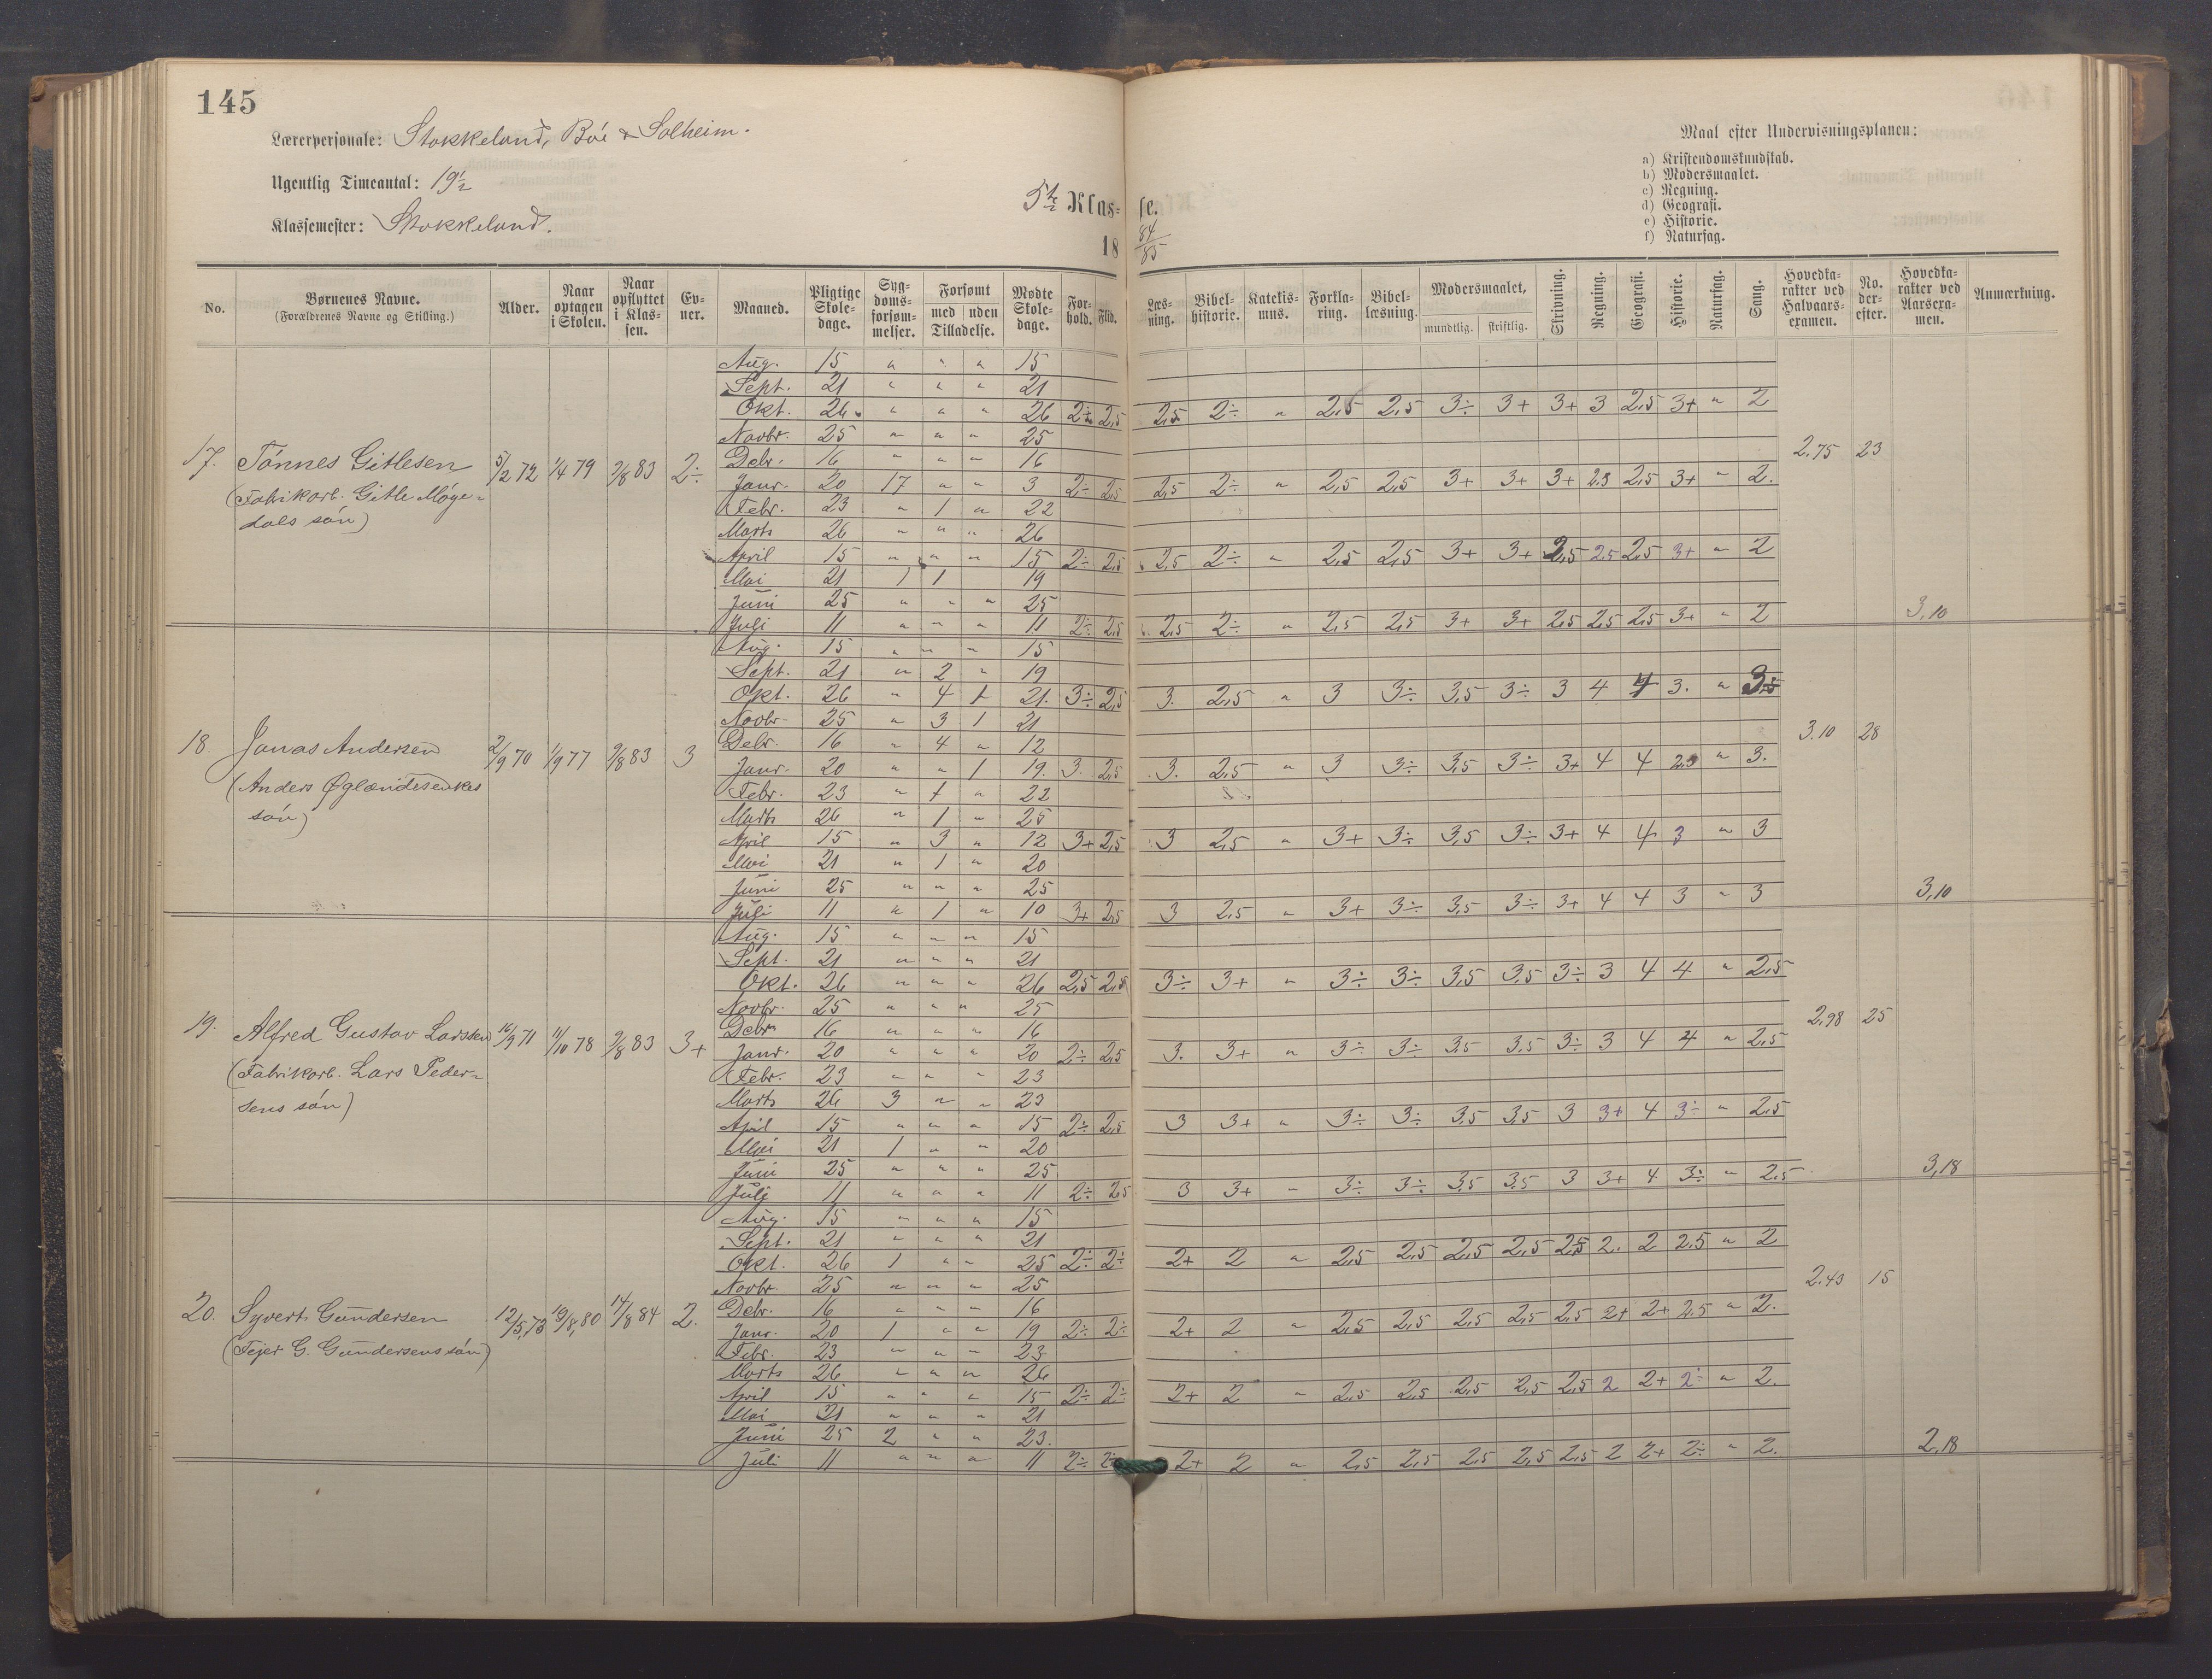 145
Lærerpersonale: Stokkeland, Bøe & Solheim.
Ugentlig Timeantal: 19½
Klassemester: Stokkeland.
5te Klasse.
18 84/85
Maal efter Undervisningsplanen:
a) Kristendomskundskab.
b) Modersmaalet.
c) Regning.
d) Geografi.
e) Historie.
f) Naturfag.
No. Børnenes Navne. (Forældrenes Navne og Stilling.) Alder. Naar optagen i Skolen. Naar opflyttet i Klassen. Evner. Maaned. Pligtige Skoledage. Sygdomsforsømmelser. Forsømt med uden Tilladelse. Mødte Skoledage. Forhold. Flid. Læsning. Bibelhistorie. Katekismus. Forklaring. Bibellæsning. Modersmaalet, mundtlig. skriftlig. Skrivning. Regning. Geografi. Historie. Naturfag. Sang. Hovedkarakter ved Halvaarsexamen. No. derefter. Hovedkarakter ved Aarsexamen. Anmærkning.
17. Tønnes Gitlesen 5/2 72 1/4 79 9/8 83 2÷
(Fabrikarb. Gitle Møgedals søn)
Aug. 15 " " " 15
Sept. 21 " " " 21
Okt. 26 " " " 26 2÷ 2,5 2,5 2÷ " 2,5 2,5 3÷ 3+ 3+ 3 2,5 3+ " 2
Novbr. 25 " " " 25
Debr. 16 " " " 16 2,75 23
Janr. 20 17 " " 3 2÷ 2,5 2,5 2÷ " 2,5 2,5 3+ 3+ 3+ 2.3 2,5 3+ " 2.
Febr. 23 " 1 " 22
Marts 26 " " " 26
April 15 " " " 15 2÷ 2,5 2,5 2÷ " 2,5 2,5 3+ 3+ 2,5 2,5 2,5 3+ " 2
Mai 21 1 1 19
Juni 25 " " " 25
Juli 11 " " " 11 2÷ 2,5 2,5 2÷ " 2,5 2,5 3+ 3+ 2,5 2,5 2,5 3+ " 2 3,10
18. Jonas Andersen 2/9 70 1/9 77 9/8 83 3
(Anders
søn)
Aug. 15 " " " 15
Sept. 21 " 2 " 19
Okt. 26 " 4 1 21. 3÷ 2,5 3. 2,5 " 3 3÷ 3,5 3÷ 3 4 4 3. "
Novbr. 25 " 3 1 21
Debr. 16 " 4 " 12 3.10 28
Janr. 20 " " 1 19. 3. 2,5 3. 2,5 " 3 3÷ 3,5 3÷ 3+ 4 4 " 3.
Febr. 23 " 1 " 22
Marts 26 " 1 " 25
April 15 " 3 " 12 3+ 2,5 3 2,5 " 3+ 3÷ 3,5 3÷ 3+ 4 4 3 " 3
Mai 21 " 1 " 20
Juni 25 " " " 25
Juli 11 " 1 " 10 3+ 2,5 3 2,5 " 3+ 3÷ 3,5 3÷ 3+ 4 4 3 " 3 3,10
19. Alfred Gustav Larssen 16/9 71 11/10 78 9/8 83 3+
(Fabrikarb. Lars Pedersens søn)
Aug. 15 " " " 15
Sept. 21 " " " 21
Okt. 26 " " " 26 2,5 2,5 3÷ 3+ " 3÷ 3÷ 3,5 3,5 3÷ 3 4 4 " 2,5
Novbr. 25 " " " 25
Debr. 16 " " " 16 2,98 25
Janr. 20 " " " 20 2÷ 2,5 3. 3+ " 3÷ 3÷ 3,5 3,5 3÷ 3 4 4 " 2,5
Febr. 23 " " " 23
Marts 26 3 " " 23
April 15 " " " 15 2÷ 2,5 3 3+ " 3÷ 3÷ 3,5 3,5 3 3+ 4 3÷ " 2,5
Mai 21 1 " " 20
Juni 25 " " " 25
Juli 11 " " " 11 2÷ 2,5 3 3+ " 3÷ 3÷ 3,5 3,5 3 3+ 4 3÷ " 2,5 3,18
20. Syvert Gundersen 12/5,73 19/8,80 14/8 84 2.
(Fejer G. Gundersens søn)
Aug. 15 " " " 15
Sept. 21 " " " 21
Okt. 26 1 " " 25 2÷ 2÷ 2+ 2 " 2,5 2,5 2,5 2,5 2,5 2. 2 2.5 " 2
Novbr. 25 " " " 25
Debr. 16 " " " 16 2.43 15
Janr. 20 1 " " 19 2÷ 2÷ 2+ 2 " 2,5 2,5 2,5 2,5 2,5 2+ 2+ 2,5 " 2.
Febr. 23 " " " 23
Marts 26 " " " 26
April 15 " " " 15 2÷ 2÷ 2+ 2 " 2,5 2,5 2,5 2,5 2,5 2 2+ 2÷ " 2.
Mai 21 " " " 21
Juni 25 2 " " 23.
Juli 11 " " " 11 2÷ 2÷ 2+ 2 " 2,5 2,5 2,5 2,5 2,5 2 2+ 2÷ " 2. 2,18